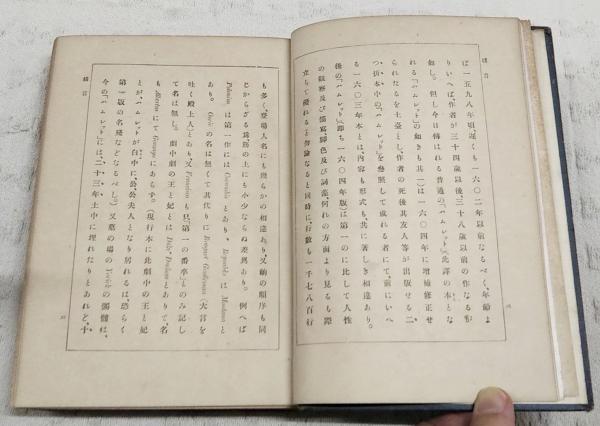 緒言
ば一五九八年頃、遅くも一六〇二年以前なるべく、年齢よ
りいへば、作者が三十四歳以後三十八歳以前の作なるが
如し。但し今日傳はれる普通の「ハムレット」(此譯の本とな
れる「ハムレット」の如きも其一)は一六〇四年に増補修正せ
られたるを土臺とし、作者の死後其友人等が出版せる二
つ折本中の「ハムレット」を参照して成れる者にて、前にいへ
る一六〇三年本とは、内容も形式も、共に著しき相違あり。
後の「ハムレット」(即ち一六〇四年版)は第一のに比して人性
の観察及び描寫、脚色及び詞藻、何れの方面より見るも際
立ちて優れると勿論なると同時に、行数も一千七八百行
緒言
も多く、登場人名にも幾らかの相違あり、又齣の順序も同
じからざる爲、筋の上にも小少ならぬ差異あり。例へば
Polonius は第一作には Corambis とあり、 Reynaldo は Montano と
あり。 Osric の名は無くて其代りに Braggart Gentleman (大言を
吐く殿上人)とあり、又 Francisco も只「第一の番卒」とのみ記し
て名は無し。劇中劇の王と妃とは Duke, Dutchess とありて、名
も Albertus にて Gonzago にあらず。(現行本に此劇中の王と妃
とが、ハムレットが白中に、公、公夫人となり居れるは、恐らく
第一版の名残などなるべし。)又墓の場の Yorick の髑髏は、
今の「ハムレット」には、二十三年、土中に埋れたりとあれど、十